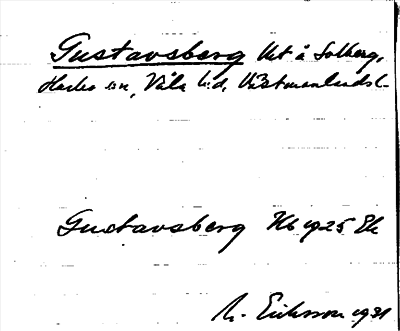 Gustavsberg Ut å Solberg,
Harbo sn, Våla hd, Västmanlands l.
Gustavsberg Kb 1925 Ek
M. Eriksson 1931